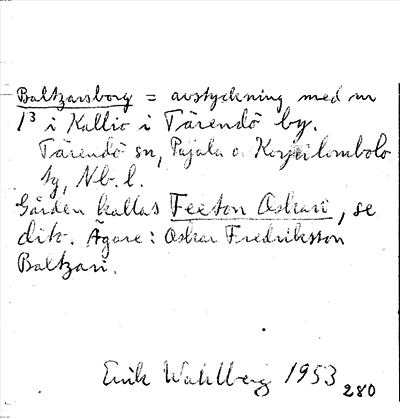 Baltzarsborg = avstyckning med nr
1³ i Kallio i Tärendö by.
Tärendö sn, Pajala o. Korpilombolo
tg, Nb. l.
Gården kallas Feeton Oskari, se
dito. Ägare: Oskar Fredriksson
Baltzari.
Erik Wahlberg 1953
280